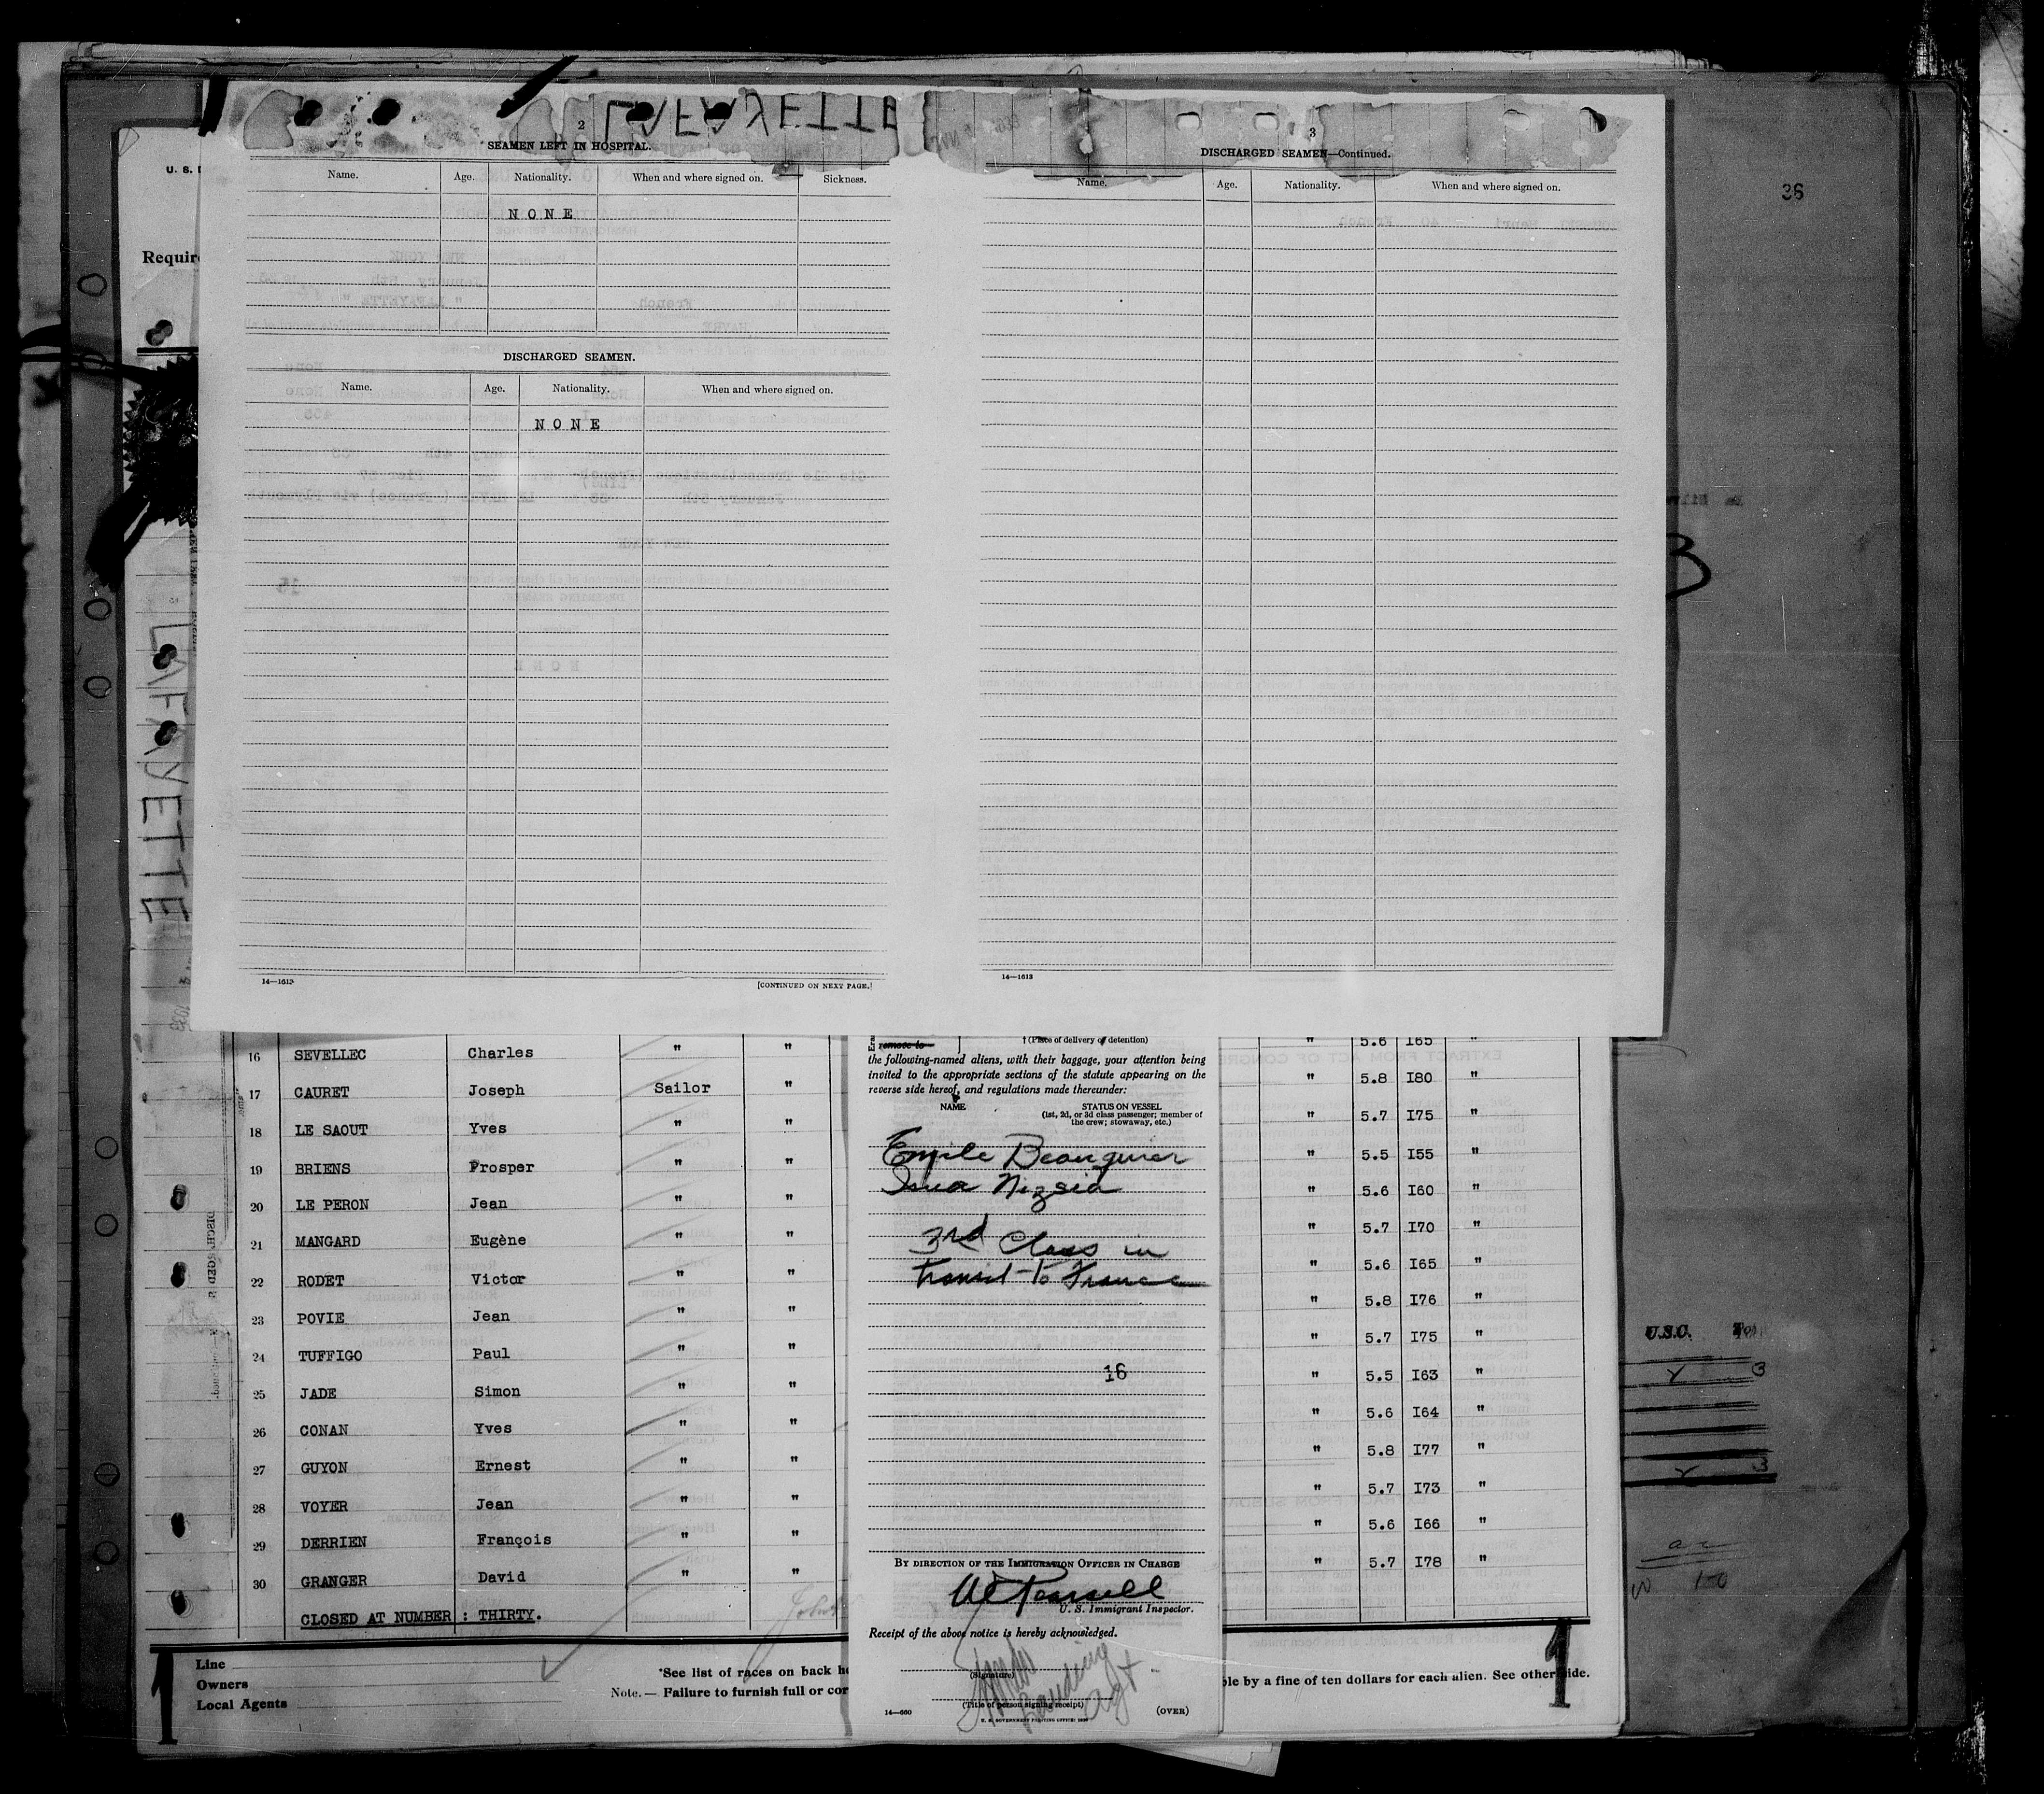 LAFAYETTE
2
SEAMEN LEFT IN HOSPITAL.
Name. Age. Nationality. When and where signed on. Sickness.
NONE
DISCHARGED SEAMEN.
Name. Age. Nationality. When and where signed on.
NONE
14—1613
[CONTINUED ON NEXT PAGE.]
3
DISCHARGED SEAMEN—Continued.
Name. Age. Nationality. When and where signed on.
14—1613
36
U. S.
LAFAYETTE
16 SEVELLEC Charles " "
17 CAURET Joseph Sailor "
18 LE SAOUT Yves " "
19 BRIENS Prosper " "
20 LE PERON Jean " "
21 MANGARD Eugène " "
22 RODET Victor " "
23 POVIE Jean " "
24 TUFFIGO Paul " "
25 JADE Simon " "
26 CONAN Yves " "
27 GUYON Ernest " "
28 VOYER Jean " "
29 DERRIEN François " "
30 GRANGER David " "
CLOSED AT NUMBER : THIRTY.
remove to
† (Place of delivery of detention)
the following-named aliens, with their baggage, your attention being
invited to the appropriate sections of the statute appearing on the
reverse side hereof, and regulations made thereunder:
NAME
STATUS ON VESSEL
(1st, 2d, or 3d class passenger; member of
the crew; stowaway, etc.)
Emile
3rd Class in
transit to France
16
BY DIRECTION OF THE IMMIGRATION OFFICER IN CHARGE
U. S. Immigrant Inspector.
Receipt of the above notice is hereby acknowledged.
(Signature)
Landing Agt
(Title of person signing receipt)
14—660
(OVER)
" 5.6 I65
" 5.8 I80 "
" 5.7 I75 "
" 5.5 I55 "
" 5.6 I60 "
" 5.7 I70 "
" 5.6 I65 "
" 5.8 I76 "
" 5.7 I75 "
" 5.5 I63 "
" 5.6 I64 "
" 5.8 I77 "
" 5.7 I73 "
" 5.6 I66 "
" 5.7 I78 "
U.S.C.
Line
Owners
Local Agents
*See list of races on back
Note.— Failure to furnish full or
by a fine of ten dollars for each alien. See other side.
1
1